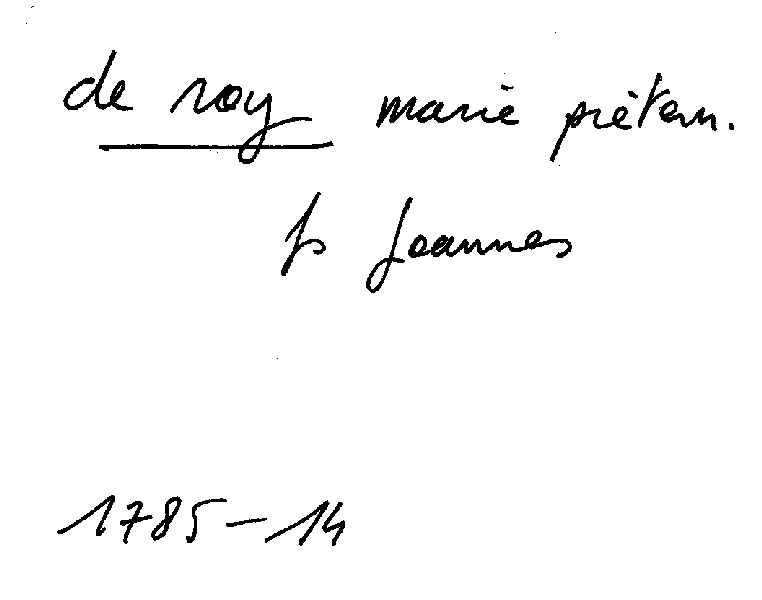 de roy marie piètern.
fs Joannes
1785-14